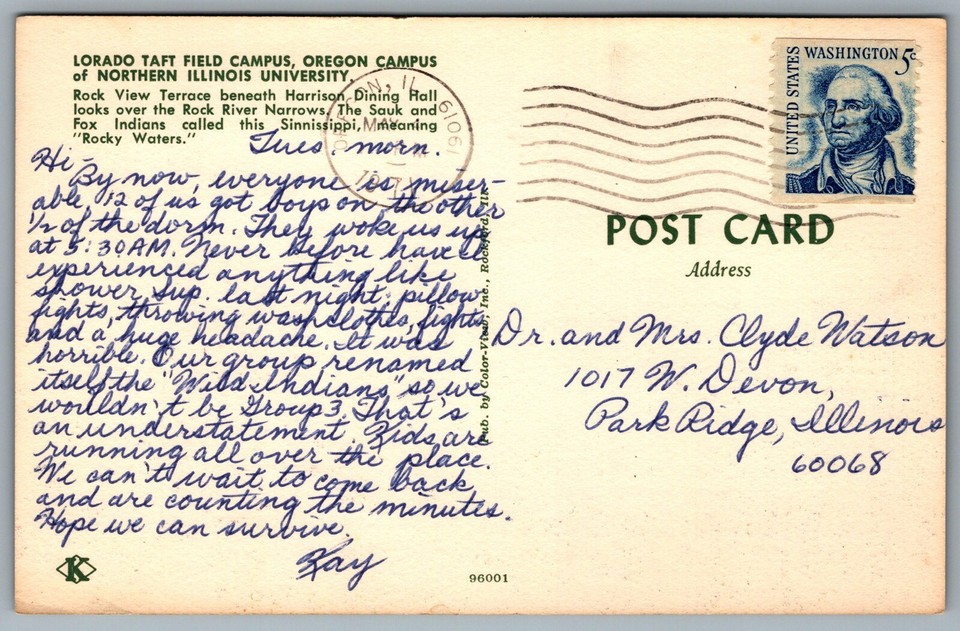 LORADO TAFT FIELD CAMPUS, OREGON CAMPUS
of NORTHERN ILLINOIS UNIVERSITY,
Rock View Terrace beneath Harrison Dining Hall
looks over the Rock River Narrows. The Sauk and
Fox Indians called this Sinnissippi, meaning
"Rocky Waters."
Tues. morn.
Hi-
By now, everyone is miser-
able, 12 of us got boys on the other
1/2 of the dorm. They woke us up
at 5:30 AM. Never before have I
experienced anything like
shower sup. last night; pillow
fights, throwing washclothes, fights
and a huge headache. It was
horrible. Our group renamed
itself the "Wild Indians" so we
wouldn't be Group 3. That's
an understatement. Kids are
running all over the place.
We can't wait to come back
and are counting the minutes.
Hope we can survive.
Kay
K
Pub. by Color-View, Inc., Rockford, Ill.
96001
IL 61061
MAY
UNITED STATES
WASHINGTON 5c
POST CARD
Address
Dr. and Mrs. Clyde Watson
1017 W. Devon,
Park Ridge, Illinois
60068